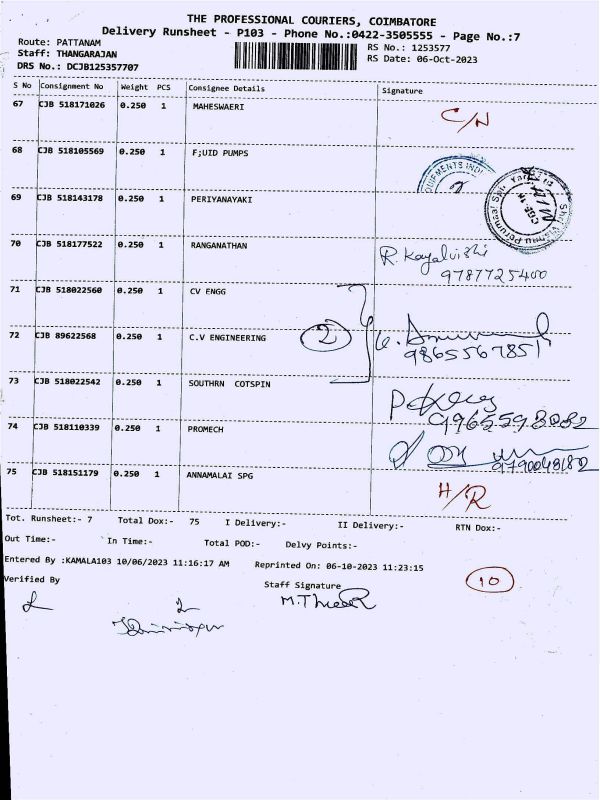 THE PROFESSIONAL COURIERS, COIMBATORE
Delivery Runsheet - P103 - Phone No.:0422-3505555 - Page No.:7
Route: PATTANAM
Staff: THANGARAJAN
DRS No.: DCJB125357707
RS No.: 1253577
RS Date: 06-Oct-2023
S No Consignment No Weight PCS Consignee Details Signature
67 CJB 518171026 0.250 1 MAHESWAERI C/N
68 CJB 518105569 0.250 1 F;UID PUMPS
69 CJB 518143178 0.250 1 PERIYANAYAKI
70 CJB 518177522 0.250 1 RANGANATHAN R. Kayalvishi
9787725400
71 CJB 518022560 0.250 1 CV ENGG
72 CJB 89622568 0.250 1 C.V ENGINEERING 2
9865567851
73 CJB 518022542 0.250 1 SOUTHRN COTSPIN
74 CJB 518110339 0.250 1 PROMECH
75 CJB 518151179 0.250 1 ANNAMALAI SPG H/R
Tot. Runsheet:- 7 Total Dox:- 75 I Delivery:- II Delivery:- RTN Dox:-
Out Time:- In Time:- Total POD:- Delvy Points:-
Entered By :KAMALA103 10/06/2023 11:16:17 AM Reprinted On: 06-10-2023 11:23:15
Verified By Staff Signature 10